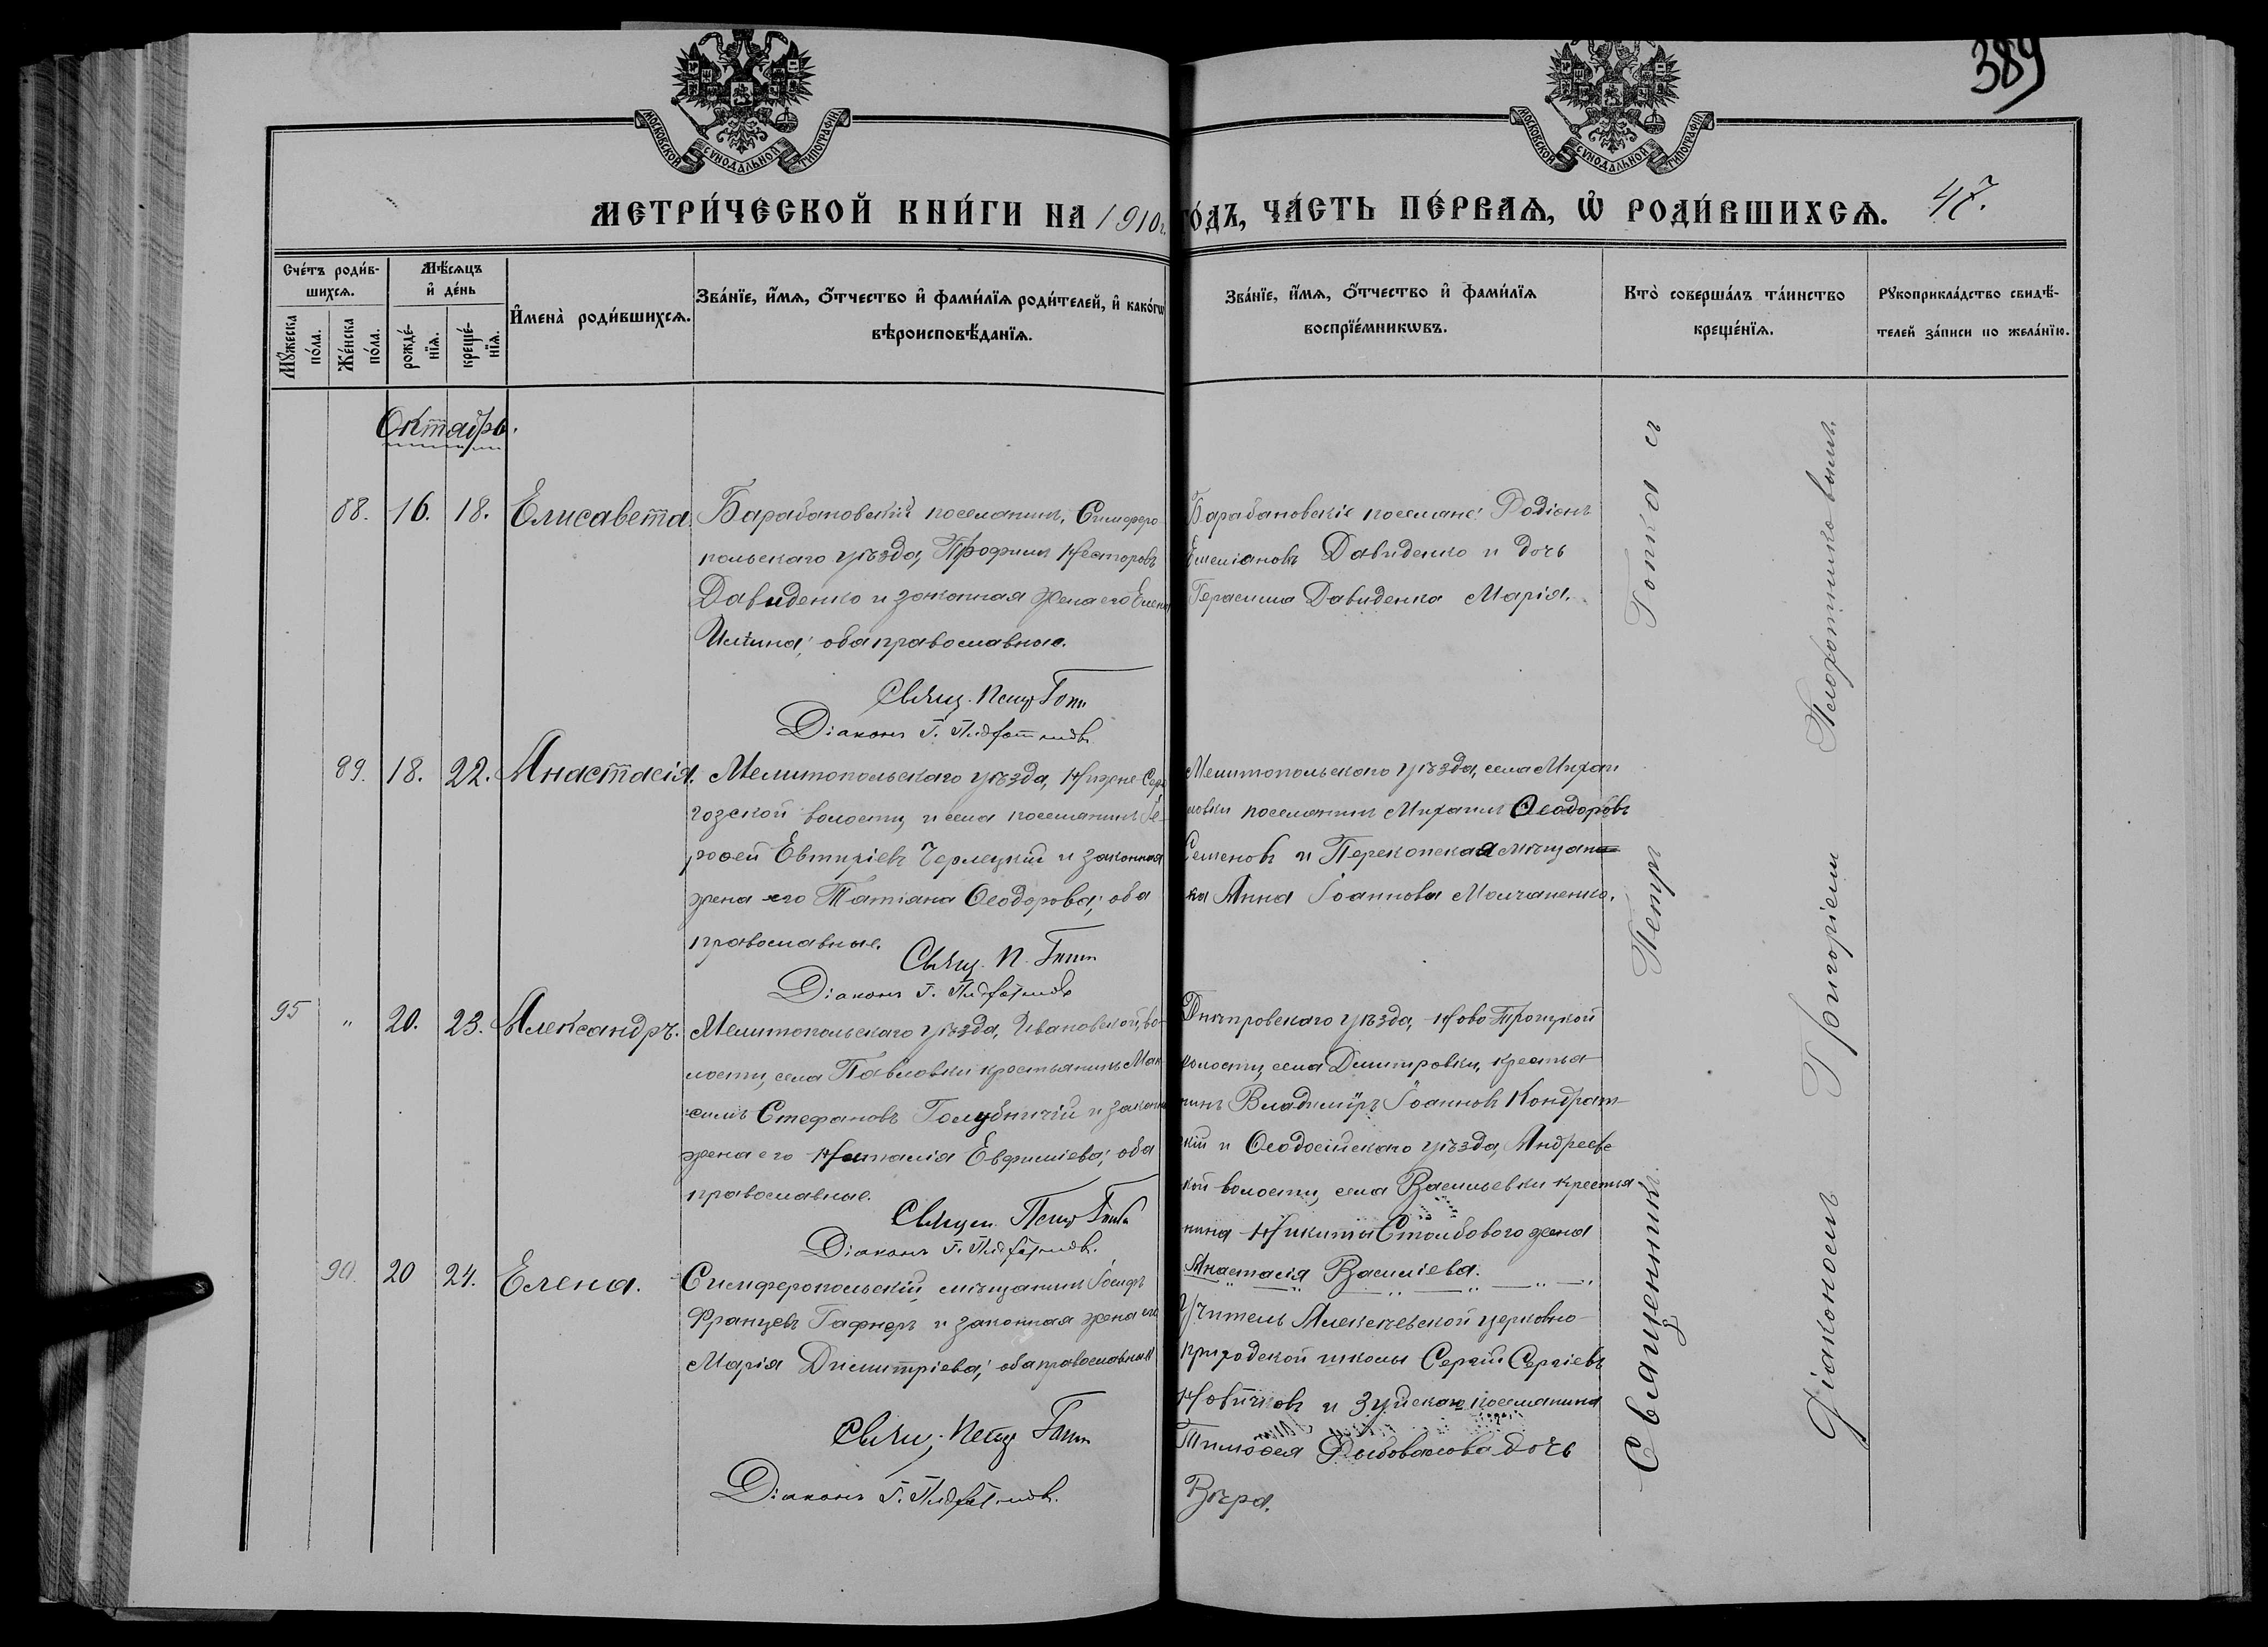 389
МОСКОВСКОЙ СУНОДАЛЬНОЙ ТИПОГРАФІИ
МОСКОВСКОЙ СУНОДАЛЬНОЙ ТИПОГРАФІИ
МЕТРИ́ЧЕСКОЙ КНИ́ГИ НА 1910 г. ГО́ДЪ, ЧА́СТЬ ПЕ́РВАѦ, Ѡ҆ РОДИ́ВШИХСѦ. 47.
Сче́тъ роди́в-
шихсѧ.
Мꙋ́жеска по́ла.
Же́нска по́ла.
Мѣ́сѧцъ
и҆ де́нь
рожде́-нїѧ.
креще́-нїѧ.
И҆мена̀ роди́вшихсѧ.
Зва́нїе, и҆́мѧ, ѻ҆́тчество и҆ фами́лїѧ роди́телей, и҆ како́гѡ
вѣроисповѣ́данїѧ.
Зва́нїе, и҆́мѧ, ѻ҆́тчество и҆ фами́лїѧ
воспрїе́мникѡвъ.
Кто̀ соверша́лъ та́инство
креще́нїѧ.
Рꙋкоприкла́дство свидѣ́-
телей за́писи по жела́нїю.
Октябрь.
88. 16. 18. Елисавета. Барабановскій поселянинъ, Симферо-
польскаго уѣзда, Трофимъ Несторовъ
Давиденко и законная жена его Елена
Иліина; оба православные.
Свящ. Петр
Діаконъ Г.
Барабановскіе поселяне: Родіонъ
Емеліановъ Давиденко и дочь
Герасима Давиденка Марія.
89. 18. 22. Анастасія. Мелитопольскаго уѣзда, Нижне-Серо-
гозской волости, и села поселянинъ Іе-
роѳей Евтихіевъ Черлецкій и законная
жена его Татіана Ѳеодорова; оба
православные.
Свящ. П.
Діаконъ Г.
Мелитопольскаго уѣзда, села Михай-
ловки поселянинъ Михаилъ Ѳеодоровъ
Семеновъ и Перекопская мѣщан-
ка Анна Іоаннова Молчаненко.
95 " 20. 23. Александръ. Мелитопольскаго уѣзда, Ивановской во-
лости, села Павловки крестьянинъ Мак-
симъ Стефановъ Голубничій и законн
жена его Наталія Евфиміева; оба
православные.
Священ. Петр
Діаконъ Г.
Днѣпровскаго уѣзда, Ново-Троицкой
волости, села Димитровки, крестья-
нинъ Владиміръ Іоанновъ Кондрат-
кій и Ѳеодосійскаго уѣзда, Андреевс
кой волости, села Васильевки крестья-
нина Никиты Столбового жена
Анастасія Василіева.
90. 20 24. Елена. Симферопольскій мѣщанинъ Іосифъ
Францевъ Гафнеръ и законная жена его
Марія Димитріева; оба православные
Свящ. Петр
Діаконъ Г.
Учитель Алексѣевской церковно-
приходской школы Сергій Сергіевъ
Новичковъ и Зуйскаго поселянина
Тимоѳея дочь
Вѣра.
Священникъ Петръ Гопка съ
Діакономъ Григоріемъ